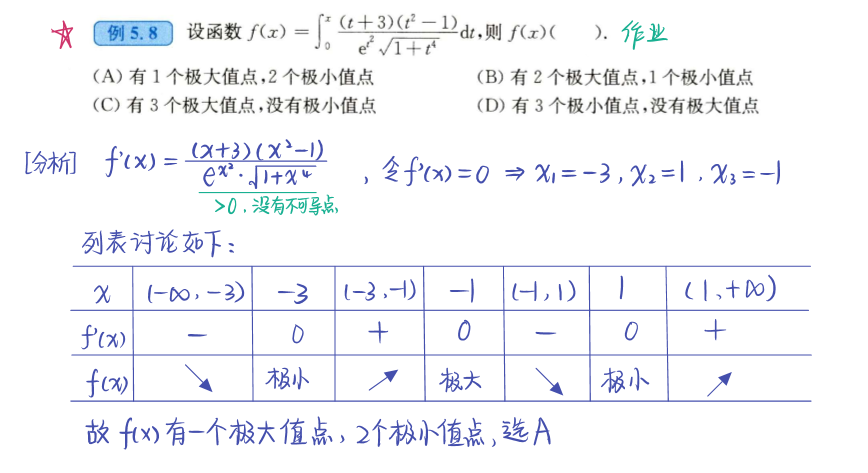 ☆ 例 5.8 设函数 f(x) = ∫₀ˣ (t+3)(t²−1)/(e^{t²}√(1+t⁴)) dt,则 f(x)( ). 作业
(A) 有 1 个极大值点,2 个极小值点 (B) 有 2 个极大值点,1 个极小值点
(C) 有 3 个极大值点,没有极小值点 (D) 有 3 个极小值点,没有极大值点
[分析] f'(x) = (x+3)(x²−1)/(e^{x²}·√(1+x⁴)) , 令f'(x)=0 ⇒ x₁=−3, x₂=1, x₃=−1
>0,没有不可导点
列表讨论如下:
x (−∞,−3) −3 (−3,−1) −1 (−1,1) 1 (1,+∞)
f'(x) − 0 + 0 − 0 +
f(x) ↘ 极小 ↗ 极大 ↘ 极小 ↗
故 f(x)有一个极大值点, 2个极小值点,选A